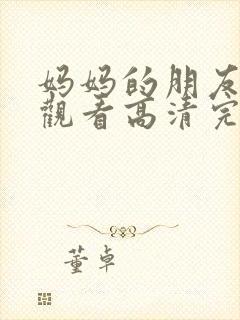 妈妈的朋友
觀看高清完
董卓